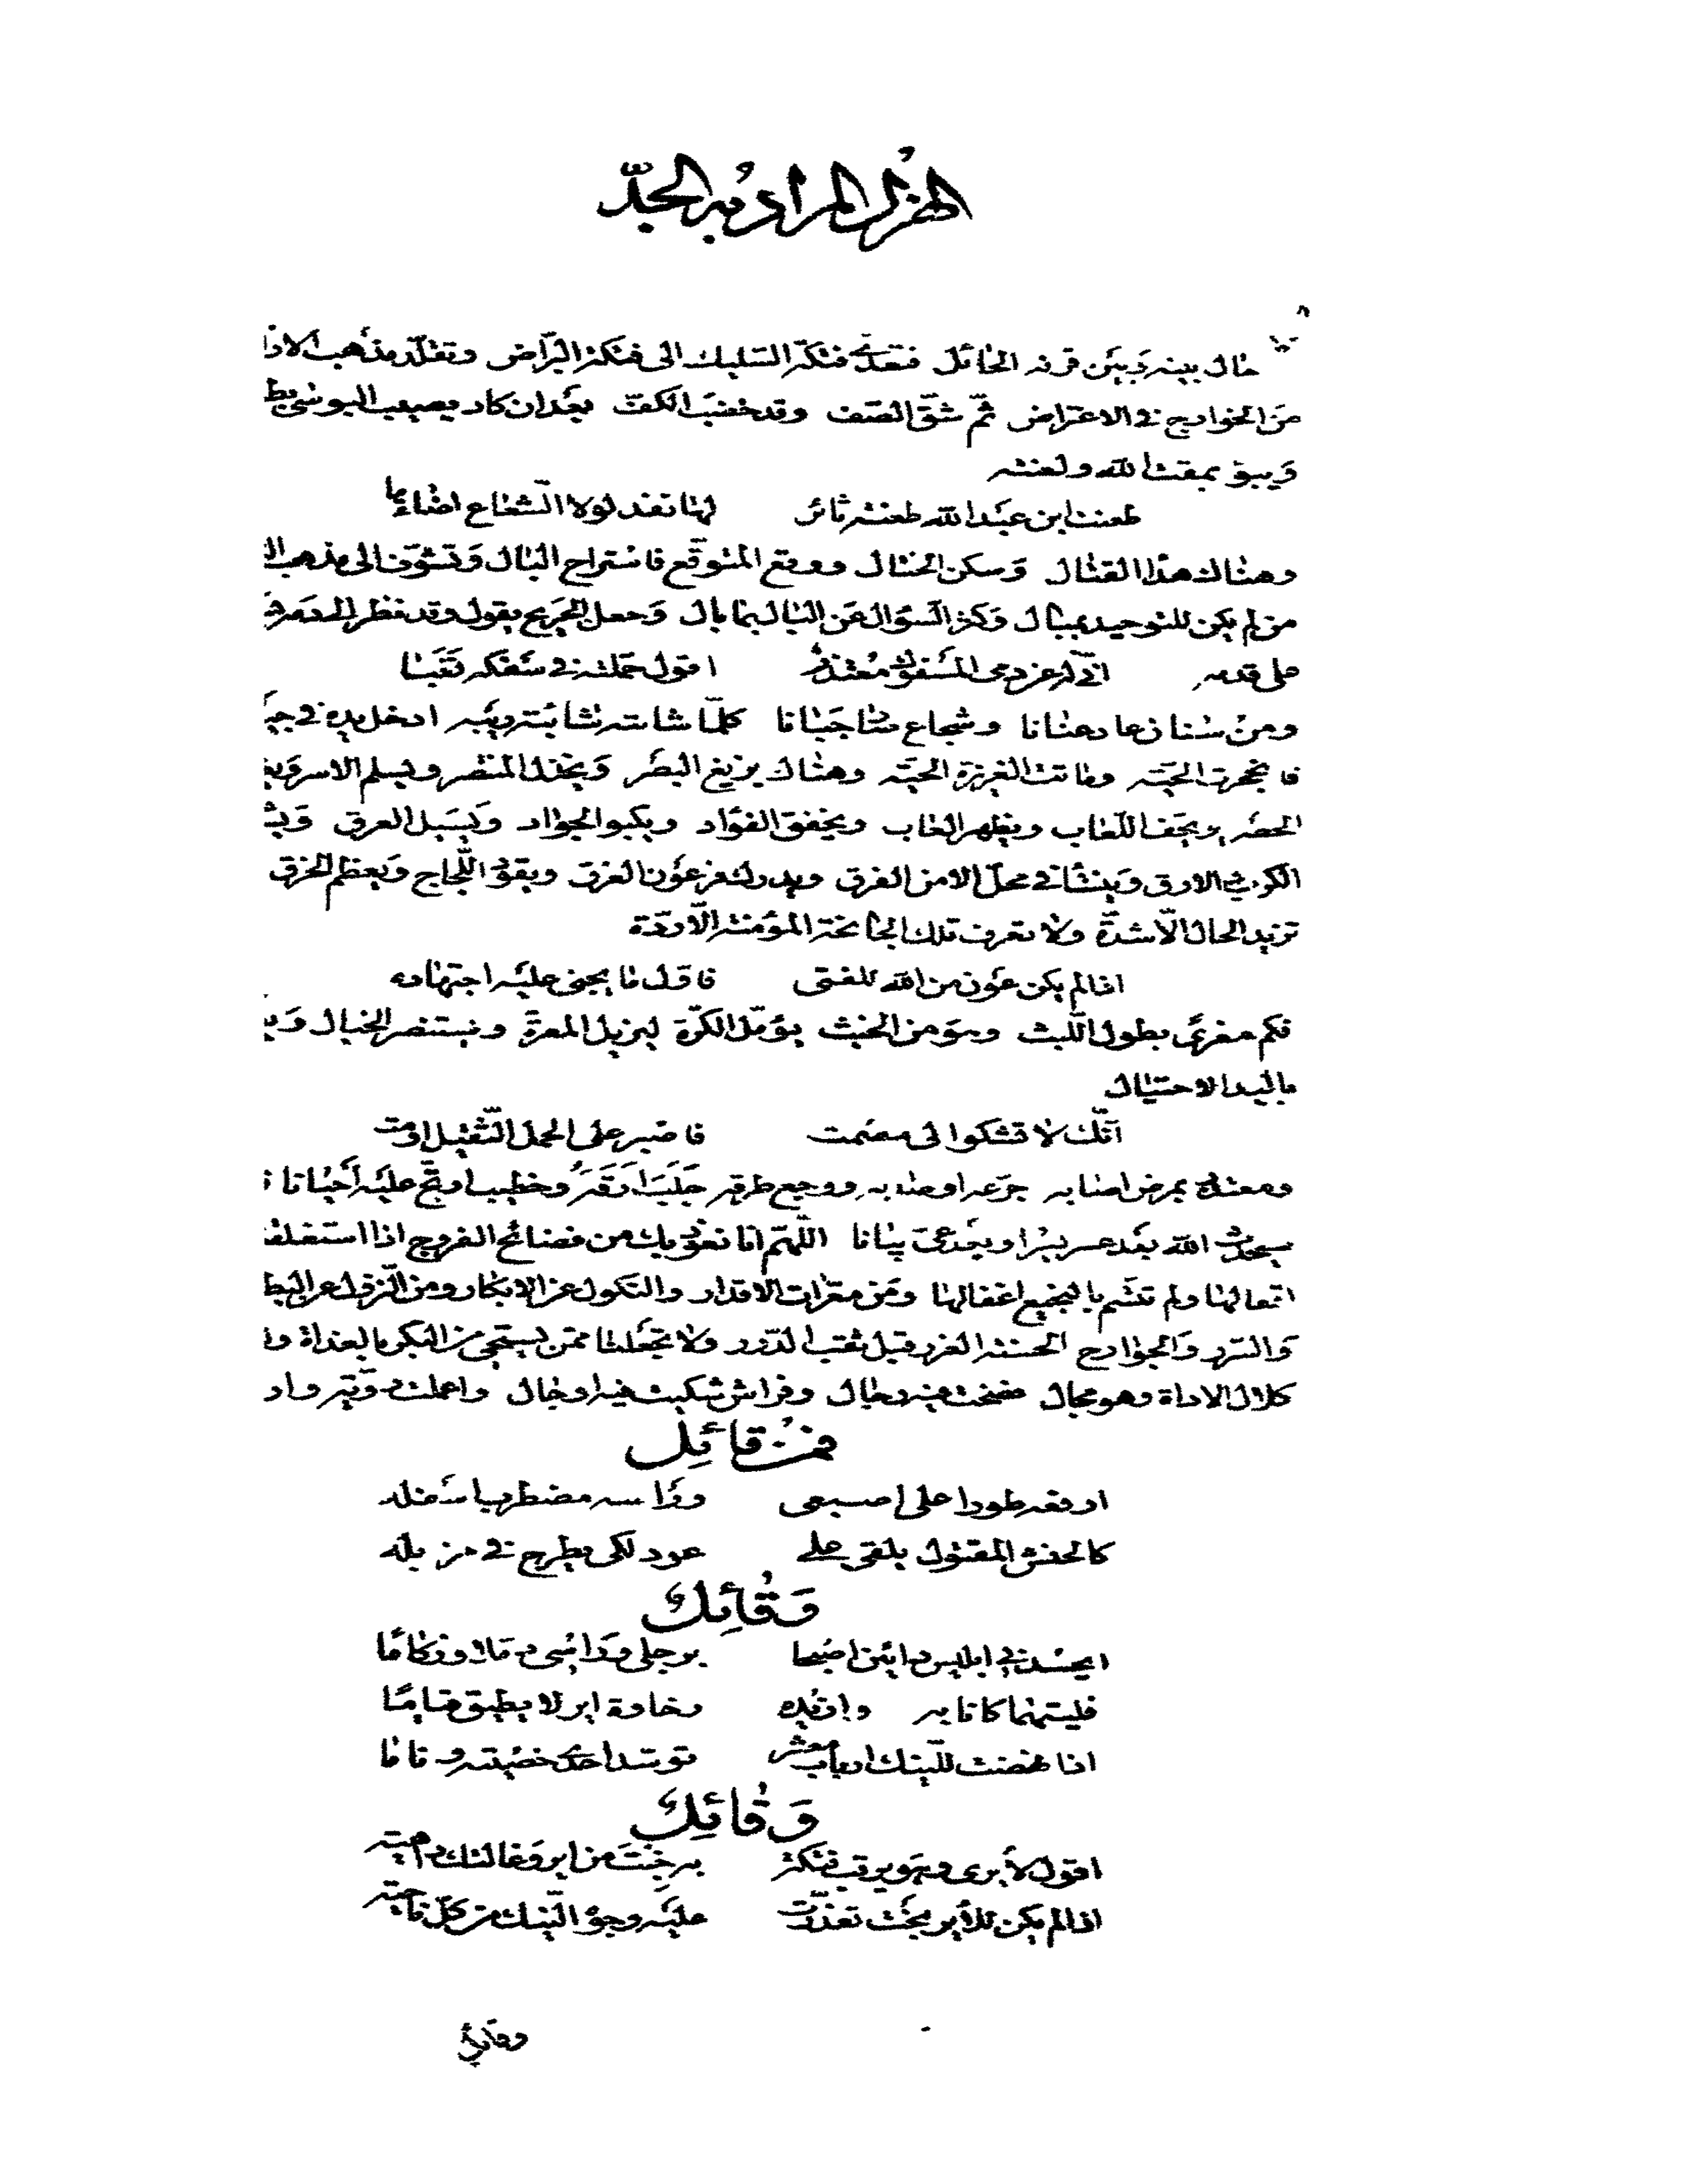 الهزل المراد به الجدّ
حال بينه وبين قرنه الحائل فتعدّى فتكة السليك الى فتكة البرّاض وتقلّد مذهب الازا
من الخوارج في الاعتراض ثمّ شقّ الصّف وقد خضب الكفّ بعد ان كاد يصيب البوسى
ويبوء بمقت الله ولعنته
طعنت ابن عبد الله طعنة ثائر لها نفذ لولا الشعاع اضاءها
وهناك هذا القتال وسكن الختال ووقع المتوقّع فاستراح البال وتشوّف الى مذهب
من لم يكن للتوحيد بمبال وكثر السؤال عن البال بما بال وجعل الجريح يقول وقد نظر الى دمه
على قدمه انّي له عن دمي المسفوك معتذر اقول حمّلته في سفكه تعبا
ومن سنان عاد عنانا وشجاع صار جبانا كلّما شابته شائبة ريبه ادخل يده في
فانجحرت الحيّه وماتت الغريزة الحيّه وهناك يزيغ البصر ويخذل المنتصر ويسلم الاسر
الحصر ويجف اللعاب ويظهر العاب ويخفق الفؤاد ويكبو الجواد ويسيل العرق
الكرب الارق وينشأ في محلّ الامن الفرق ويدرك فرعون الغرق ويقوى اللّجاج ويعظم الخرق
تزيد الحال الّا شدّة ولا تعرف تلك الجانحة المؤمنة الّا ردّة
اذا لم يكن عون من الله للفتى فاوّل ما يجني عليه اجتهاده
فكم مغرى بطول اللّبث وهو من الخبث يؤمّل الكرّة ليزيل المعرّة ويستنصر الخيال
باليد الاحتيال
انّك لا تشكوا الى مصمت فاصبر على الحمل الثّقيل او مت
ومعتذر بمرض اصابه جرّعه اوصابه ووجع طرقه جلب ارقه وخطيب ارتجّ عليه احيانا
سيحدث الله بعد عسر يسرا وبعد عيّ بيانا اللّهمّ انّا نعوذ بك من فضائح الفروج اذا استغلقت
اقفالها ولم تتّسم بالنجيع اغفالها ومن معرّات الاقدار والنكول عن الابكار ومن النّزول عن
والسّرر والجوارح الحسنة الغرر قبل ثقب الدّرر ولا تجعلنا ممّن يستحيي من البكر بالغداة
كلال الاداة وهو مجال فضحت فيه رجال وفراش شكيت فيه اوجال واعملت رويّة وار
فمن قائل
ارفعه طورا على اصبعي ورأسه مضطرب اسفله
كالحنش المقتول يلقى على عود لكى يطرح في مزبله
وقائل
ايحسدني ابليس دائين اصبحا برجلي ورأسي دمّلا وزكاما
فليتهما كانا به وازيده رخاوة اير لا يطيق قياما
اذا نهضت للنّيك ارباب معشر توسّد احدى خصيتيه وناما
وقائل
اقول لأيري وهو يرقب فتكة به خبت من اير وغالتك داهيه
اذا لم يكن للأير بخت تعذّرت عليه وجوه النّيك من كلّ ناحيه
وقائل